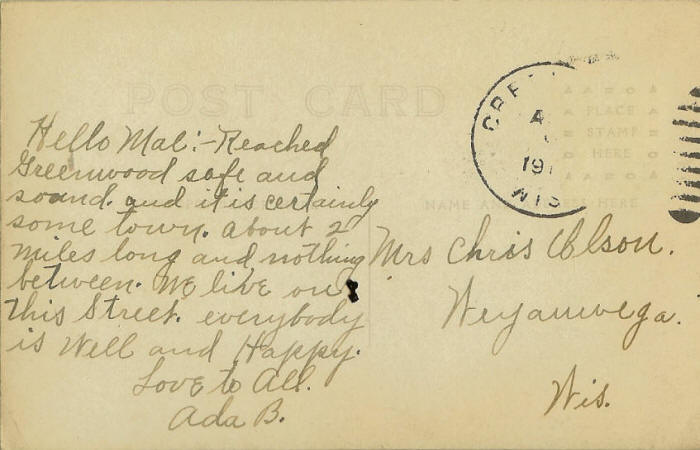 POST CARD
Hello Mae:- Reached
Greenwood safe and
sound. and it is certainly
some town. about 2
miles long and nothing
between. We live on
this Street. everybody
is Well and Happy.
Love to All.
Ada B.
191
WIS
A A Z O A
PLACE
STAMP
HERE
NAME AND HERE
Mrs Chris Olson.
Weyauwega.
Wis.